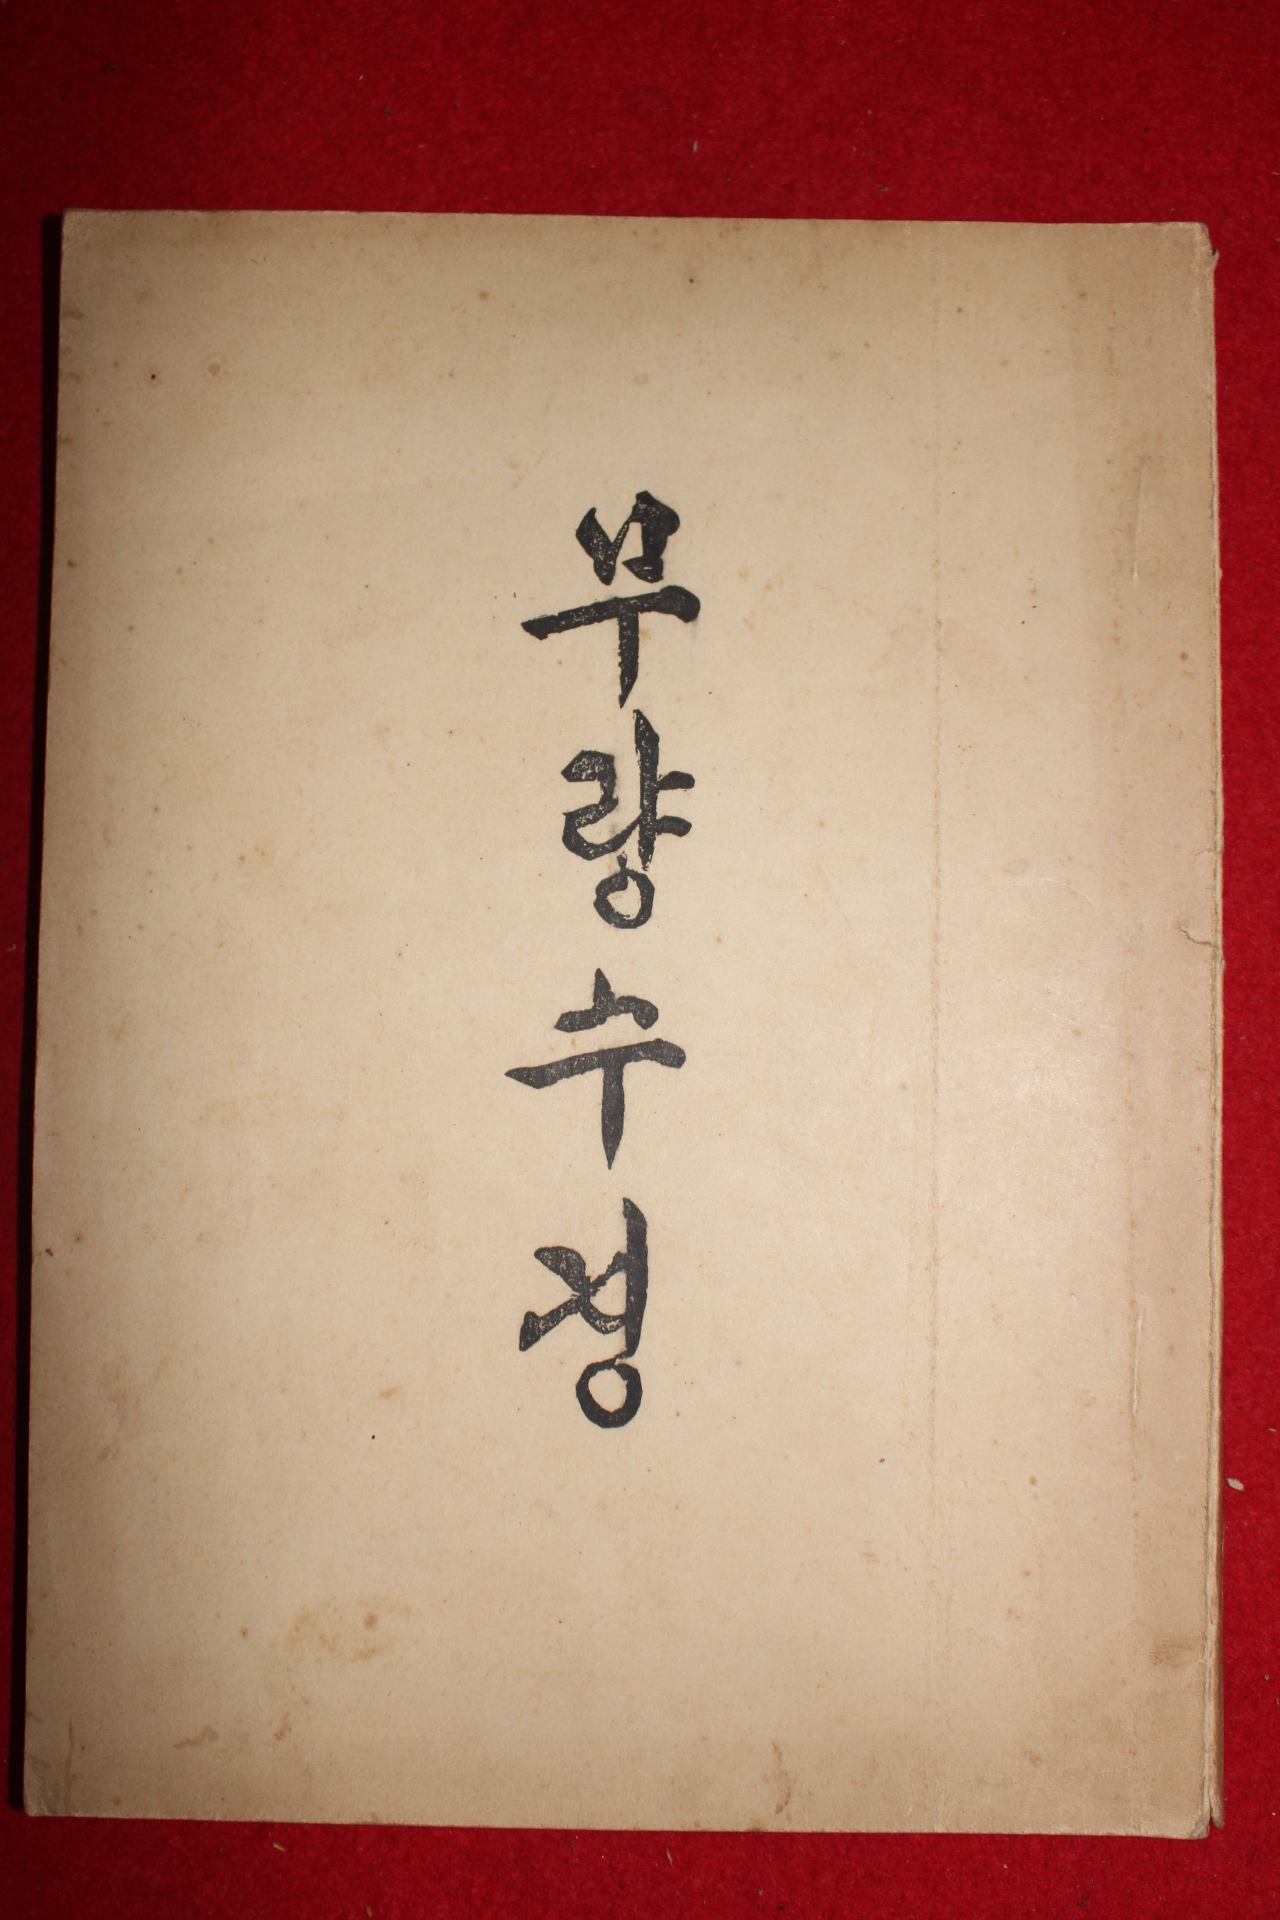 무량수경